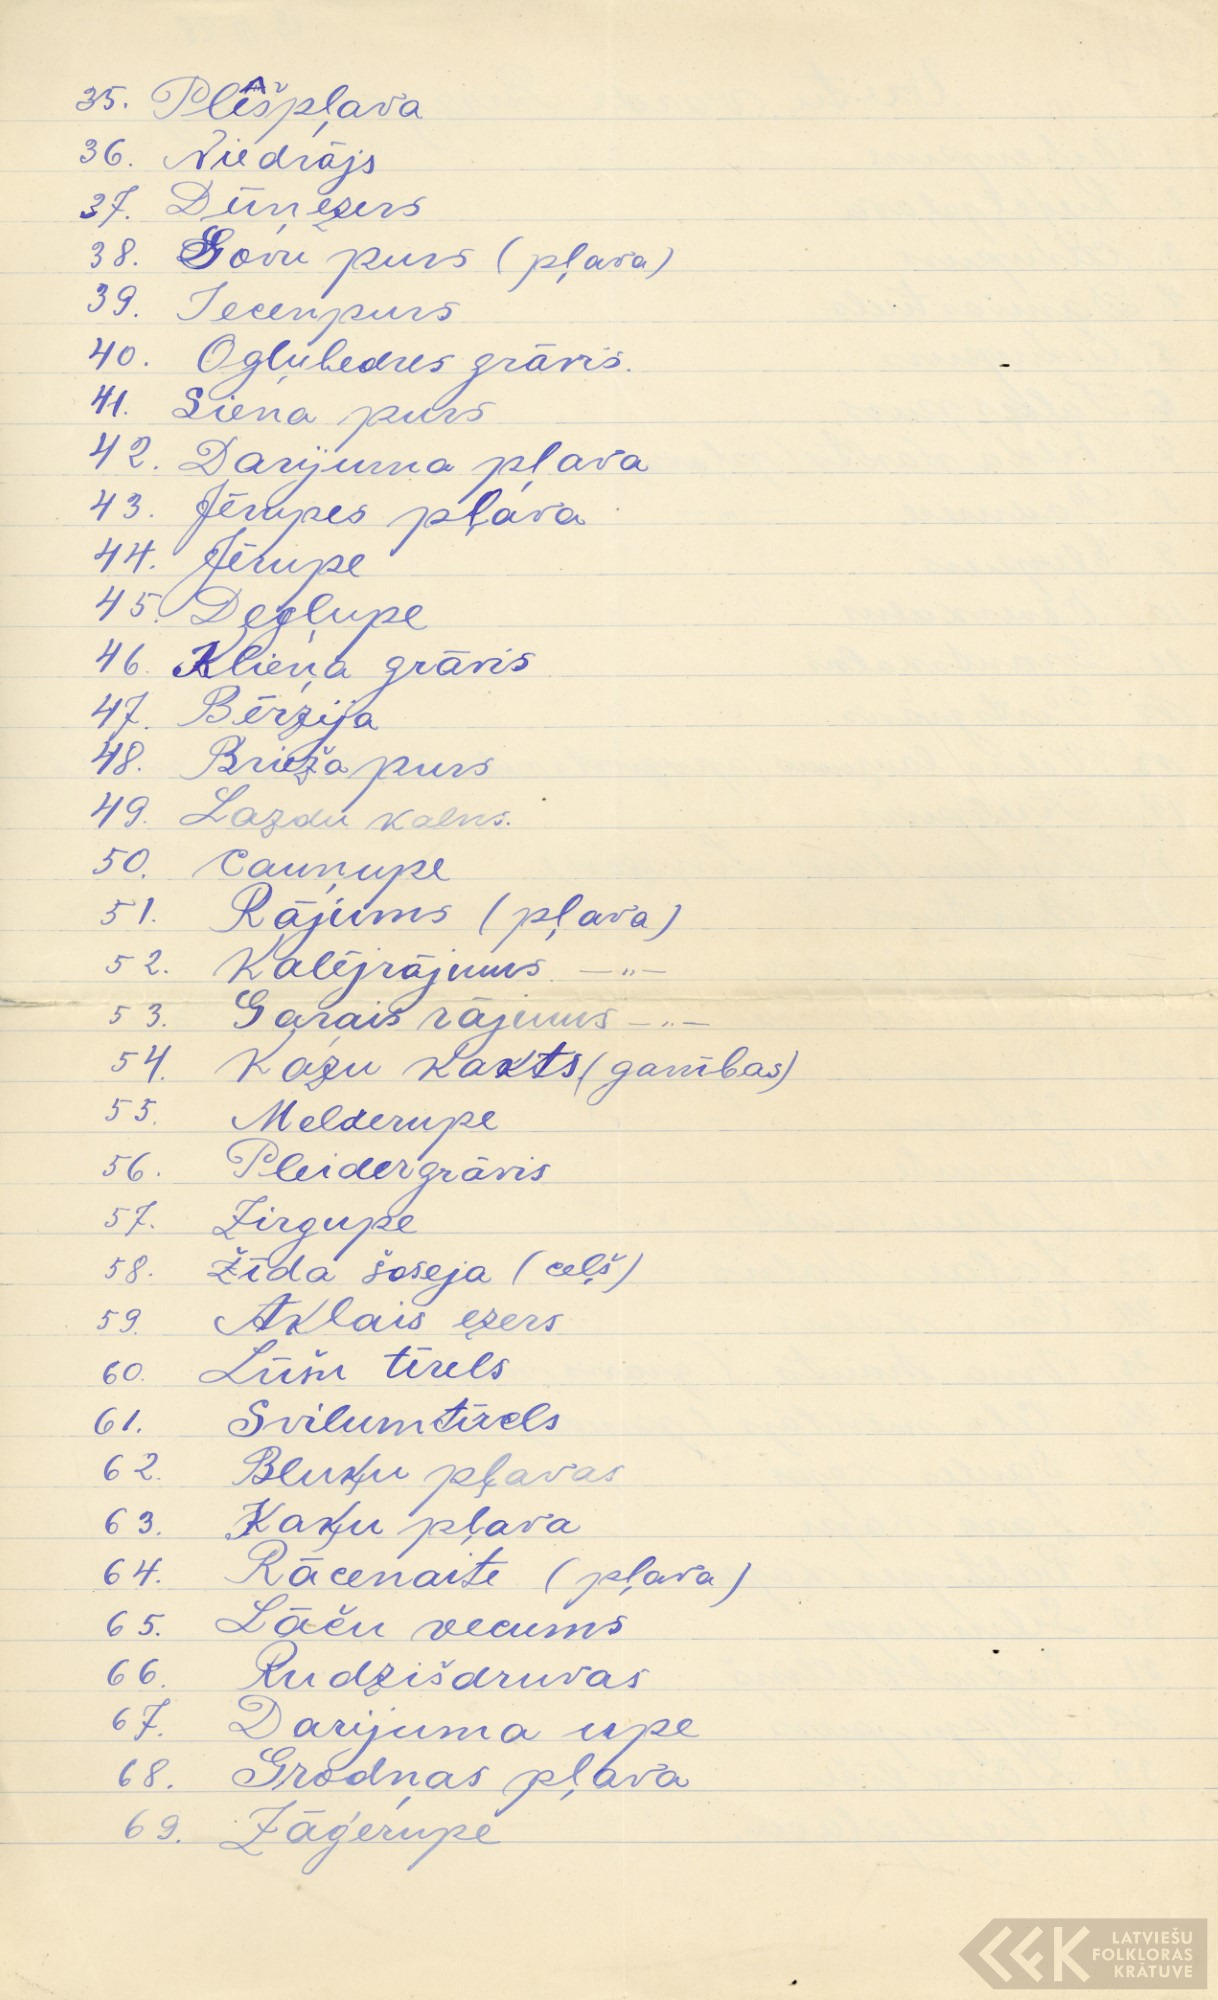 35. Plêšpļava
36. Niedrājs
37. Dūņezers
38. Govu purs (pļava)
39. Tecenpurs
40. Ogļubedres grāvis.
41. Siena purs
42. Darijuma pļava
43. Jērupes pļava
44. Jērupe
45. Degļupe
46. Klieņa grāvis
47. Bērzija
48. Brieža purs
49. Lazdu kalns.
50. Cauņupe
51. Rājums (pļava)
52. Kalējrājums —„—
53. Garais rājums —„—
54. Kazu kakts (ganības)
55. Melderupe
56. Pleidergrāvis
57. Zirgupe
58. Žīda šoseja (ceļš)
59. Aklais ezers
60. Lūšu tīrels
61. Svilumtīrels
62. Bluķu pļavas
63. Kaķu pļava
64. Rācenaite (pļava)
65. Lāču vecums
66. Rudzišdruvas
67. Darijuma upe
68. Grodņas pļava
69. Zāģerupe
LATVIEŠU
FOLKLORAS
KRĀTUVE